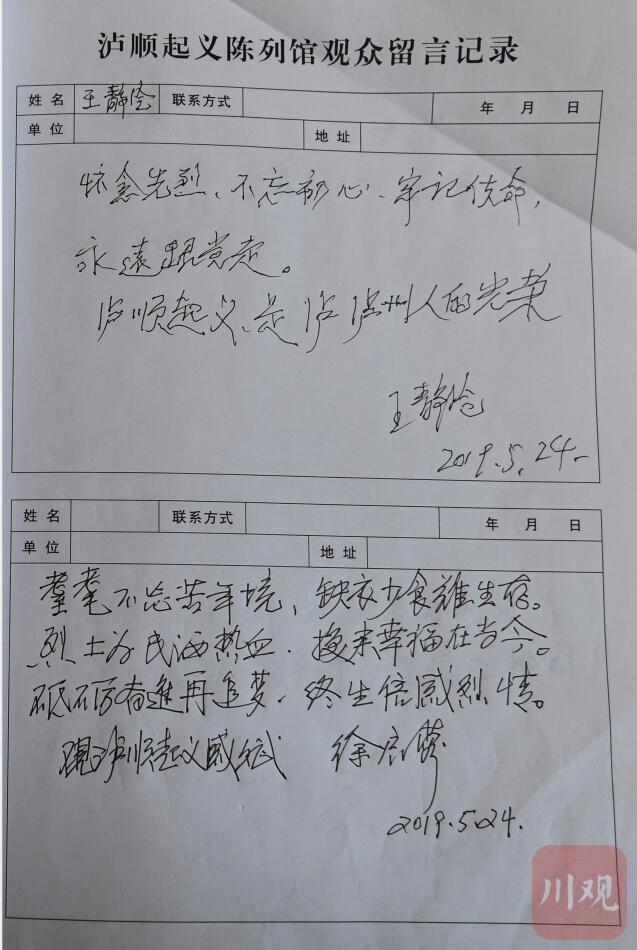 泸顺起义陈列馆观众留言记录
姓名 王静 联系方式 年 月 日
单位 地址
怀念先烈、不忘初心、牢记使命,
永远跟党走。
泸顺起义、是泸泸州人的光荣
王静
2019.5.24.
姓名 联系方式 年 月 日
单位 地址
耄耋不忘苦年境,缺衣少食难生存。
烈士为民洒热血,换来幸福在当今。
砥砺奋进再追梦,终生倍感烈情。
观泸顺起义感赋 徐
2019.5.24.
川观